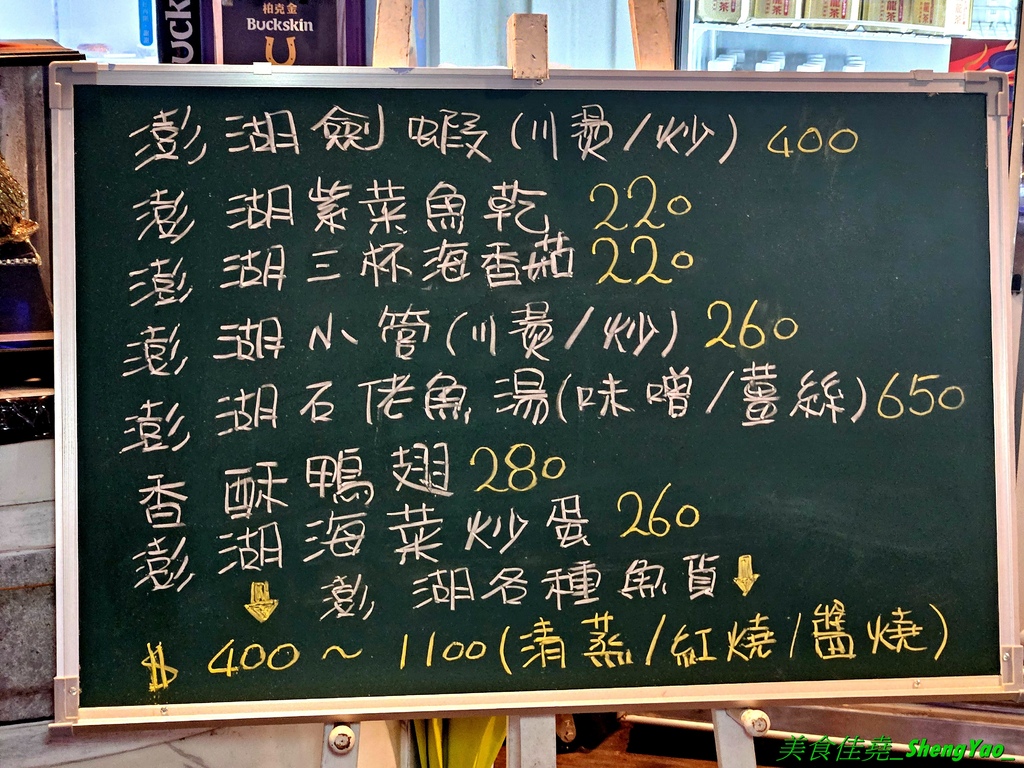 柏克金
Buckskin
uck
澎湖劍蝦(川燙/炒) 400
澎湖紫菜魚乾 220
澎湖三杯海香菇 220
澎湖小管(川燙/炒) 260
澎湖石佬魚湯(味噌/薑絲) 650
香酥鴨翅 280
澎湖海菜炒蛋 260
澎湖各種魚貨
$ 400~1100(清蒸/紅燒/醬燒)
美食佳堯_ShengYao_